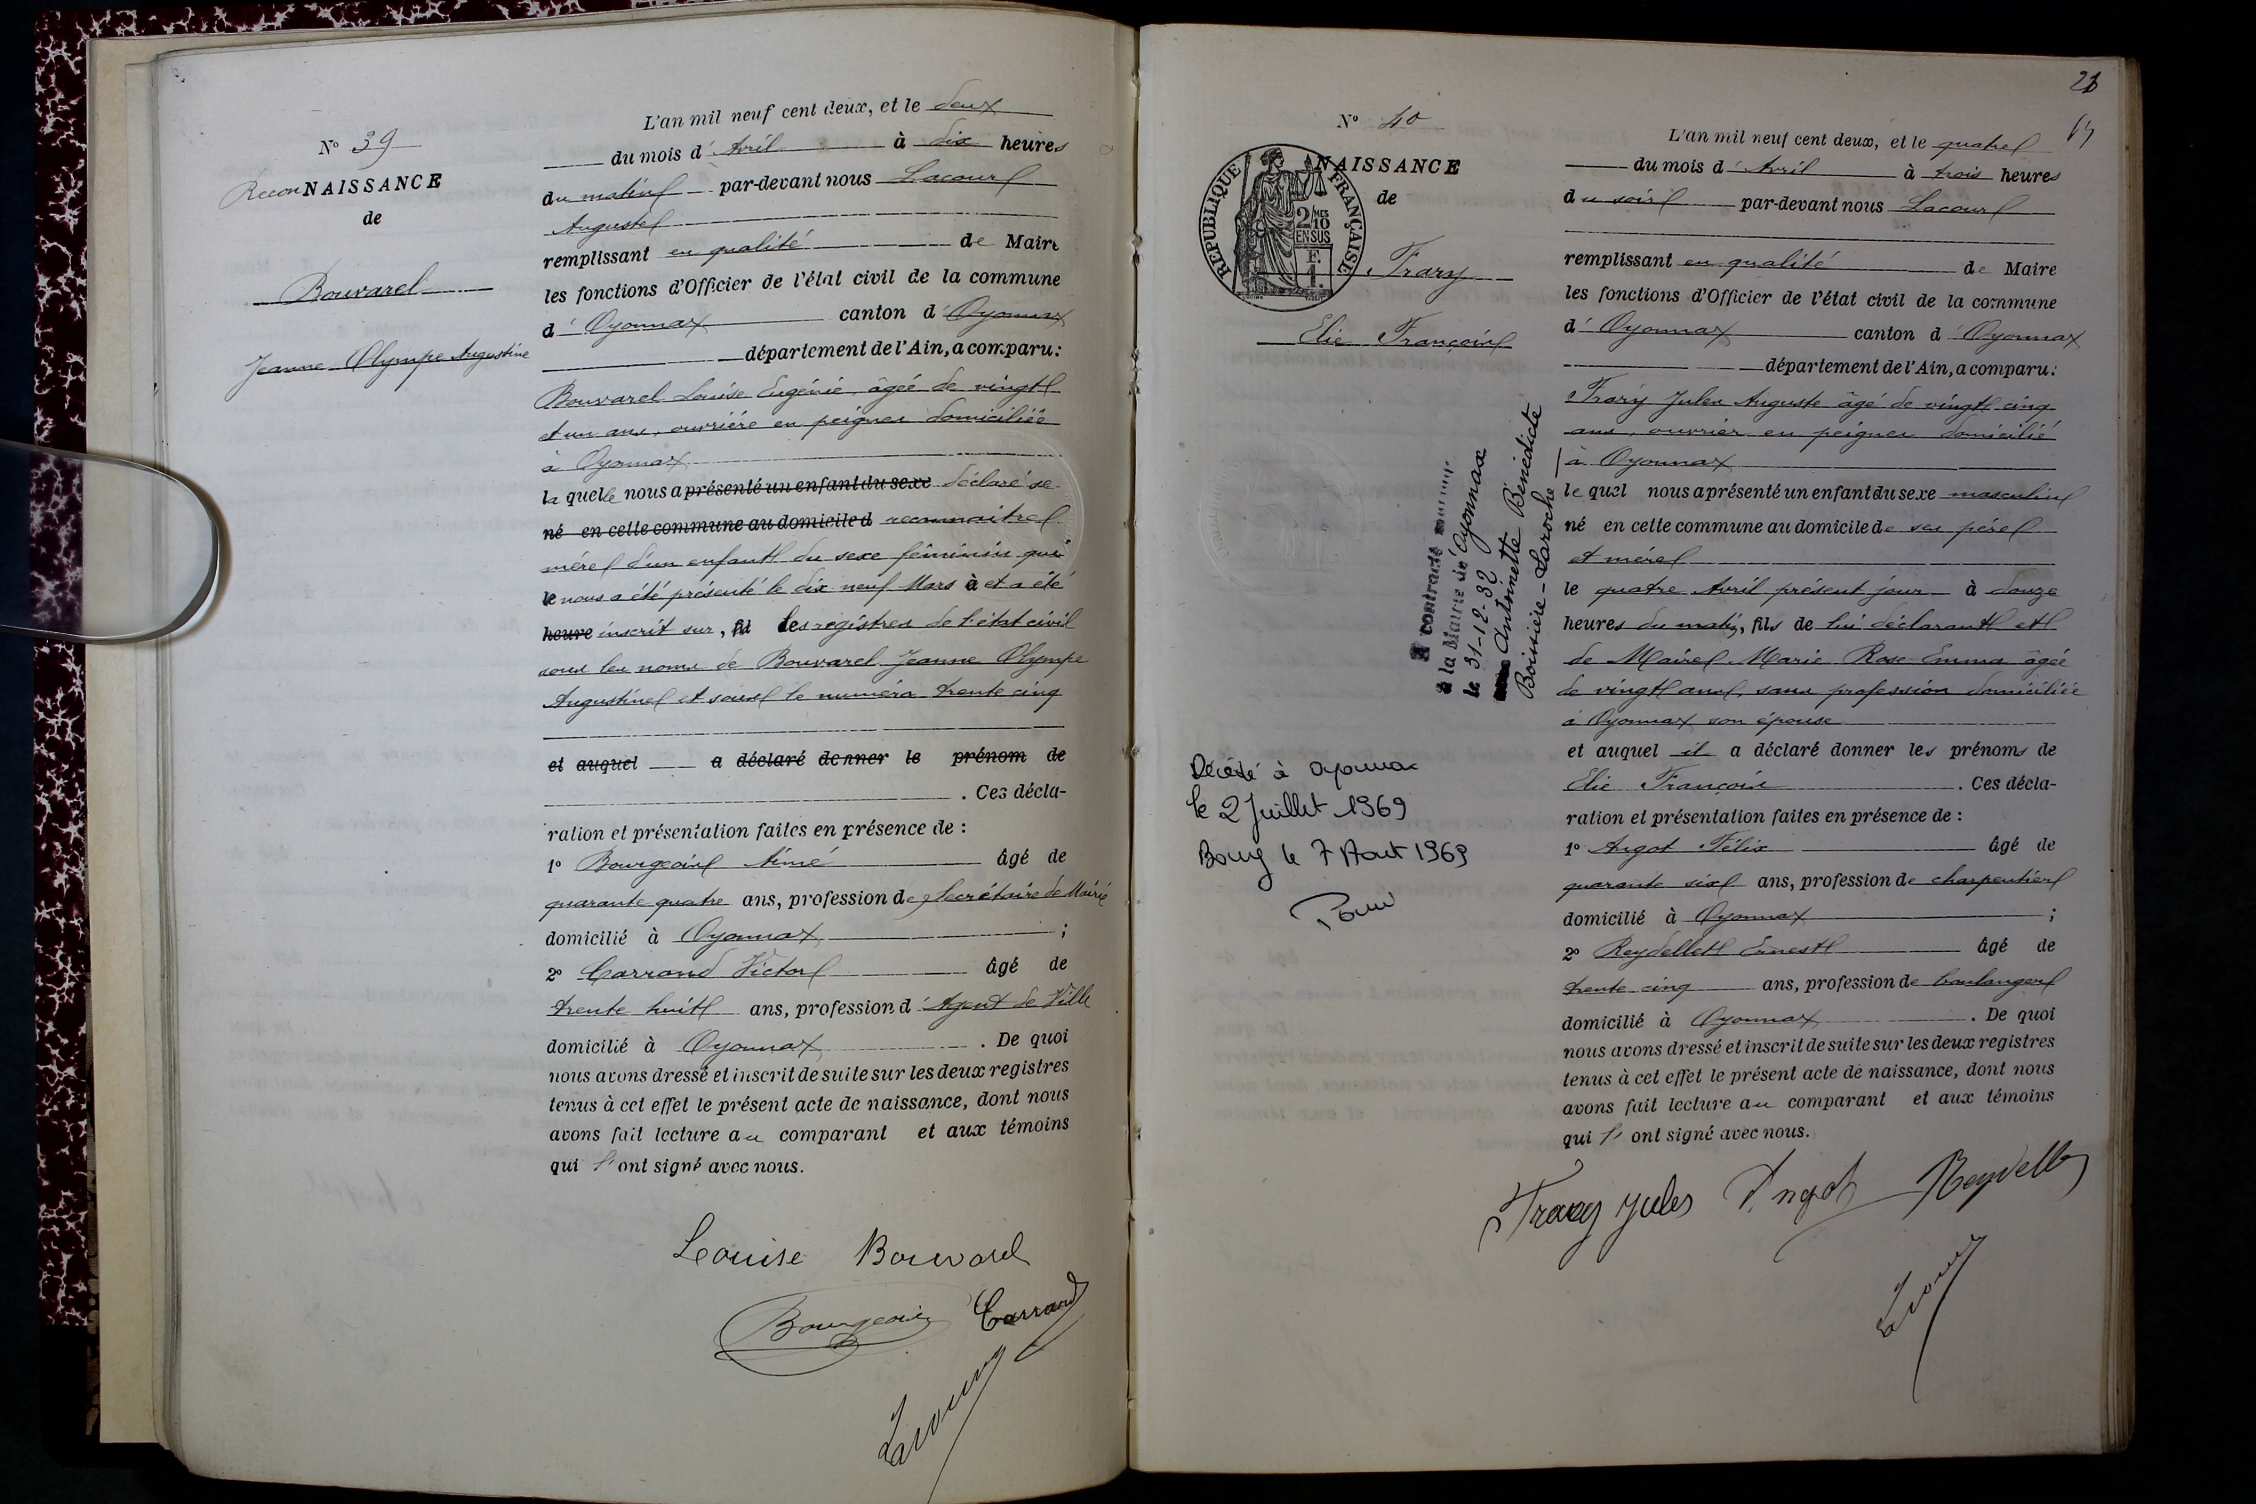 N° 39
ReconNAISSANCE
de
Bouvarel
Jeanne Olympe Augustine
L'an mil neuf cent deux, et le deux
du mois d' Avril à dix heures
du matin par-devant nous Lacour
Auguste
remplissant en qualité de Maire
les fonctions d'Officier de l'état civil de la commune
d' Oyonnax canton d' Oyonnax
département de l'Ain, a comparu :
Bouvarel Louise Eugénie, âgée de vingt
et un ans, ouvrière en peignes domiciliée
à Oyonnax
laquelle nous a présenté un enfant du sexe déclaré se
né en cette commune au domicile d reconnaitre
mère d'un enfant du sexe féminin qui
le nous a été présenté le dix neuf Mars à et a été
heure inscrit sur, fil les registres de l'état civil
sous les noms de Bouvarel Jeanne Olympe
Augustine et sous le numéro trente cinq
et auquel a déclaré donner le prénom de
. Ces décla-
ration et présentation faites en présence de :
1° Bourgeois Aimé âgé de
quarante quatre ans, profession de Secrétaire de Mairie
domicilié à Oyonnax ;
2° Carrand Victor âgé de
trente huit ans, profession d' Agent de Ville
domicilié à Oyonnax . De quoi
nous avons dressé et inscrit de suite sur les deux registres
tenus à cet effet le présent acte de naissance, dont nous
avons fait lecture au comparant et aux témoins
qui l' ont signé avec nous.
Louise Bouvarel
Bourgeois Carrand
Lacour
21
N° 40
NAISSANCE
de
REPUBLIQUE FRANÇAISE
2/10 MES
EN SUS
F.
1.
Frary
Elie François
A contracté mariage
à la Mairie de Oyonnax
le 31-12-32
avec Antoinette Bénédicte
Boissière-Laroche
Décédé à Oyonnax
le 2 Juillet 1969
Bourg le 7 Aout 1969
L'an mil neuf cent deux, et le quatre
du mois d' Avril à trois heures
du soir par-devant nous Lacour
remplissant en qualité de Maire
les fonctions d'Officier de l'état civil de la commune
d' Oyonnax canton d' Oyonnax
département de l'Ain, a comparu :
Frary Jules Auguste âgé de vingt cinq
ans, ouvrier en peignes domicilié
à Oyonnax
lequel nous a présenté un enfant du sexe masculin
né en cette commune au domicile de ses père
et mère
le quatre Avril présent jour à douze
heures du matin, fils de lui déclarant et
de Maire Marie Rose Emma âgée
de vingt ans, sans profession domiciliée
à Oyonnax son épouse
et auquel il a déclaré donner les prénoms de
Elie François . Ces décla-
ration et présentation faites en présence de :
1° Argot Félix âgé de
quarante six ans, profession de charpentier
domicilié à Oyonnax ;
2° Reydellet Ernest âgé de
trente cinq ans, profession de boulanger
domicilié à Oyonnax . De quoi
nous avons dressé et inscrit de suite sur les deux registres
tenus à cet effet le présent acte de naissance, dont nous
avons fait lecture au comparant et aux témoins
qui l' ont signé avec nous.
Frary Jules Argot Reydellet
Lacour